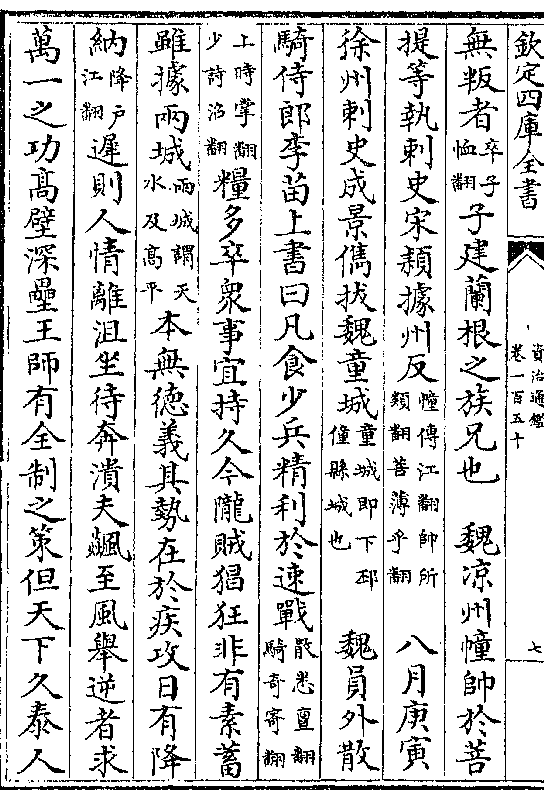 欽定四庫全書
資治通鑑
卷一百五十
七
無叛者卒子恤翻子建蘭根之族兄也　魏涼州幢帥於菩
提等執刺史宋頴據州反幢傳江翻帥所類翻菩薄乎翻　八月庚寅
徐州刺史成景儁拔魏童城童城即下邳僮縣城也　魏員外散
騎侍郎李苗上書曰凡食少兵精利於速戰散悉亶翻騎奇寄翻
上時掌翻少詩沼翻糧多卒衆事宜持久今隴賊猖狂非有素蓄
雖據兩城兩城謂天水及高平本無徳義其勢在於疾攻日有降
納降戸江翻遲則人情離沮坐待奔潰夫飈至風舉逆者求
萬一之功髙壁深壘王師有全制之策但天下久泰人